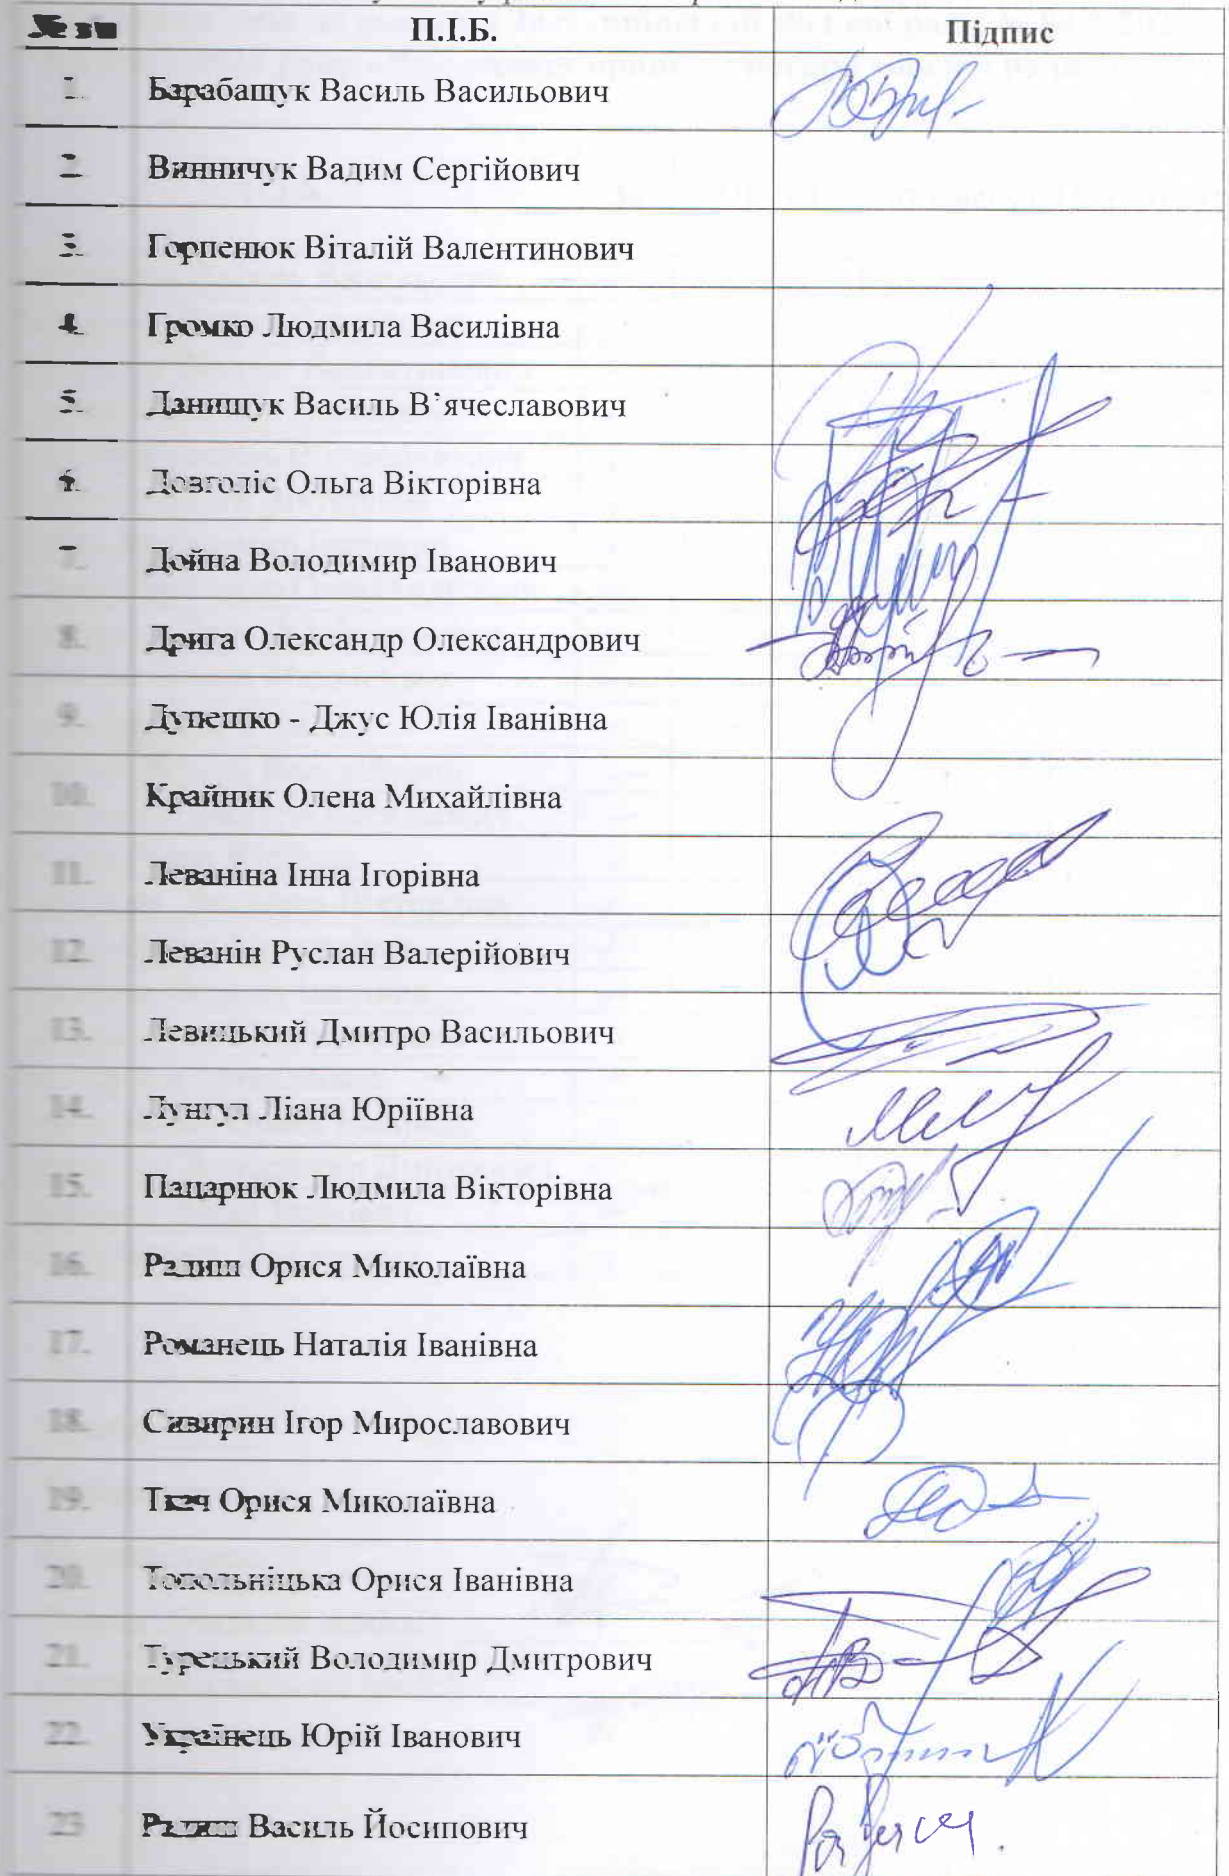 № зп П.І.Б. Підпис
1. Барабащук Василь Васильович
2. Винничук Вадим Сергійович
3. Горпенюк Віталій Валентинович
4. Громко Людмила Василівна
5. Данищук Василь В'ячеславович
6. Довголіс Ольга Вікторівна
7. Дойна Володимир Іванович
8. Дрига Олександр Олександрович
9. Дупешко - Джус Юлія Іванівна
10. Крайник Олена Михайлівна
11. Леваніна Інна Ігорівна
12. Леванін Руслан Валерійович
13. Левицький Дмитро Васильович
14. Лунгул Ліана Юріївна
15. Пацарнюк Людмила Вікторівна
16. Радиш Орися Миколаївна
17. Романець Наталія Іванівна
18. Сивирин Ігор Мирославович
19. Ткач Орися Миколаївна
20. Топольніцька Орися Іванівна
21. Турецький Володимир Дмитрович
22. Українець Юрій Іванович
23 Радиш Василь Йосипович